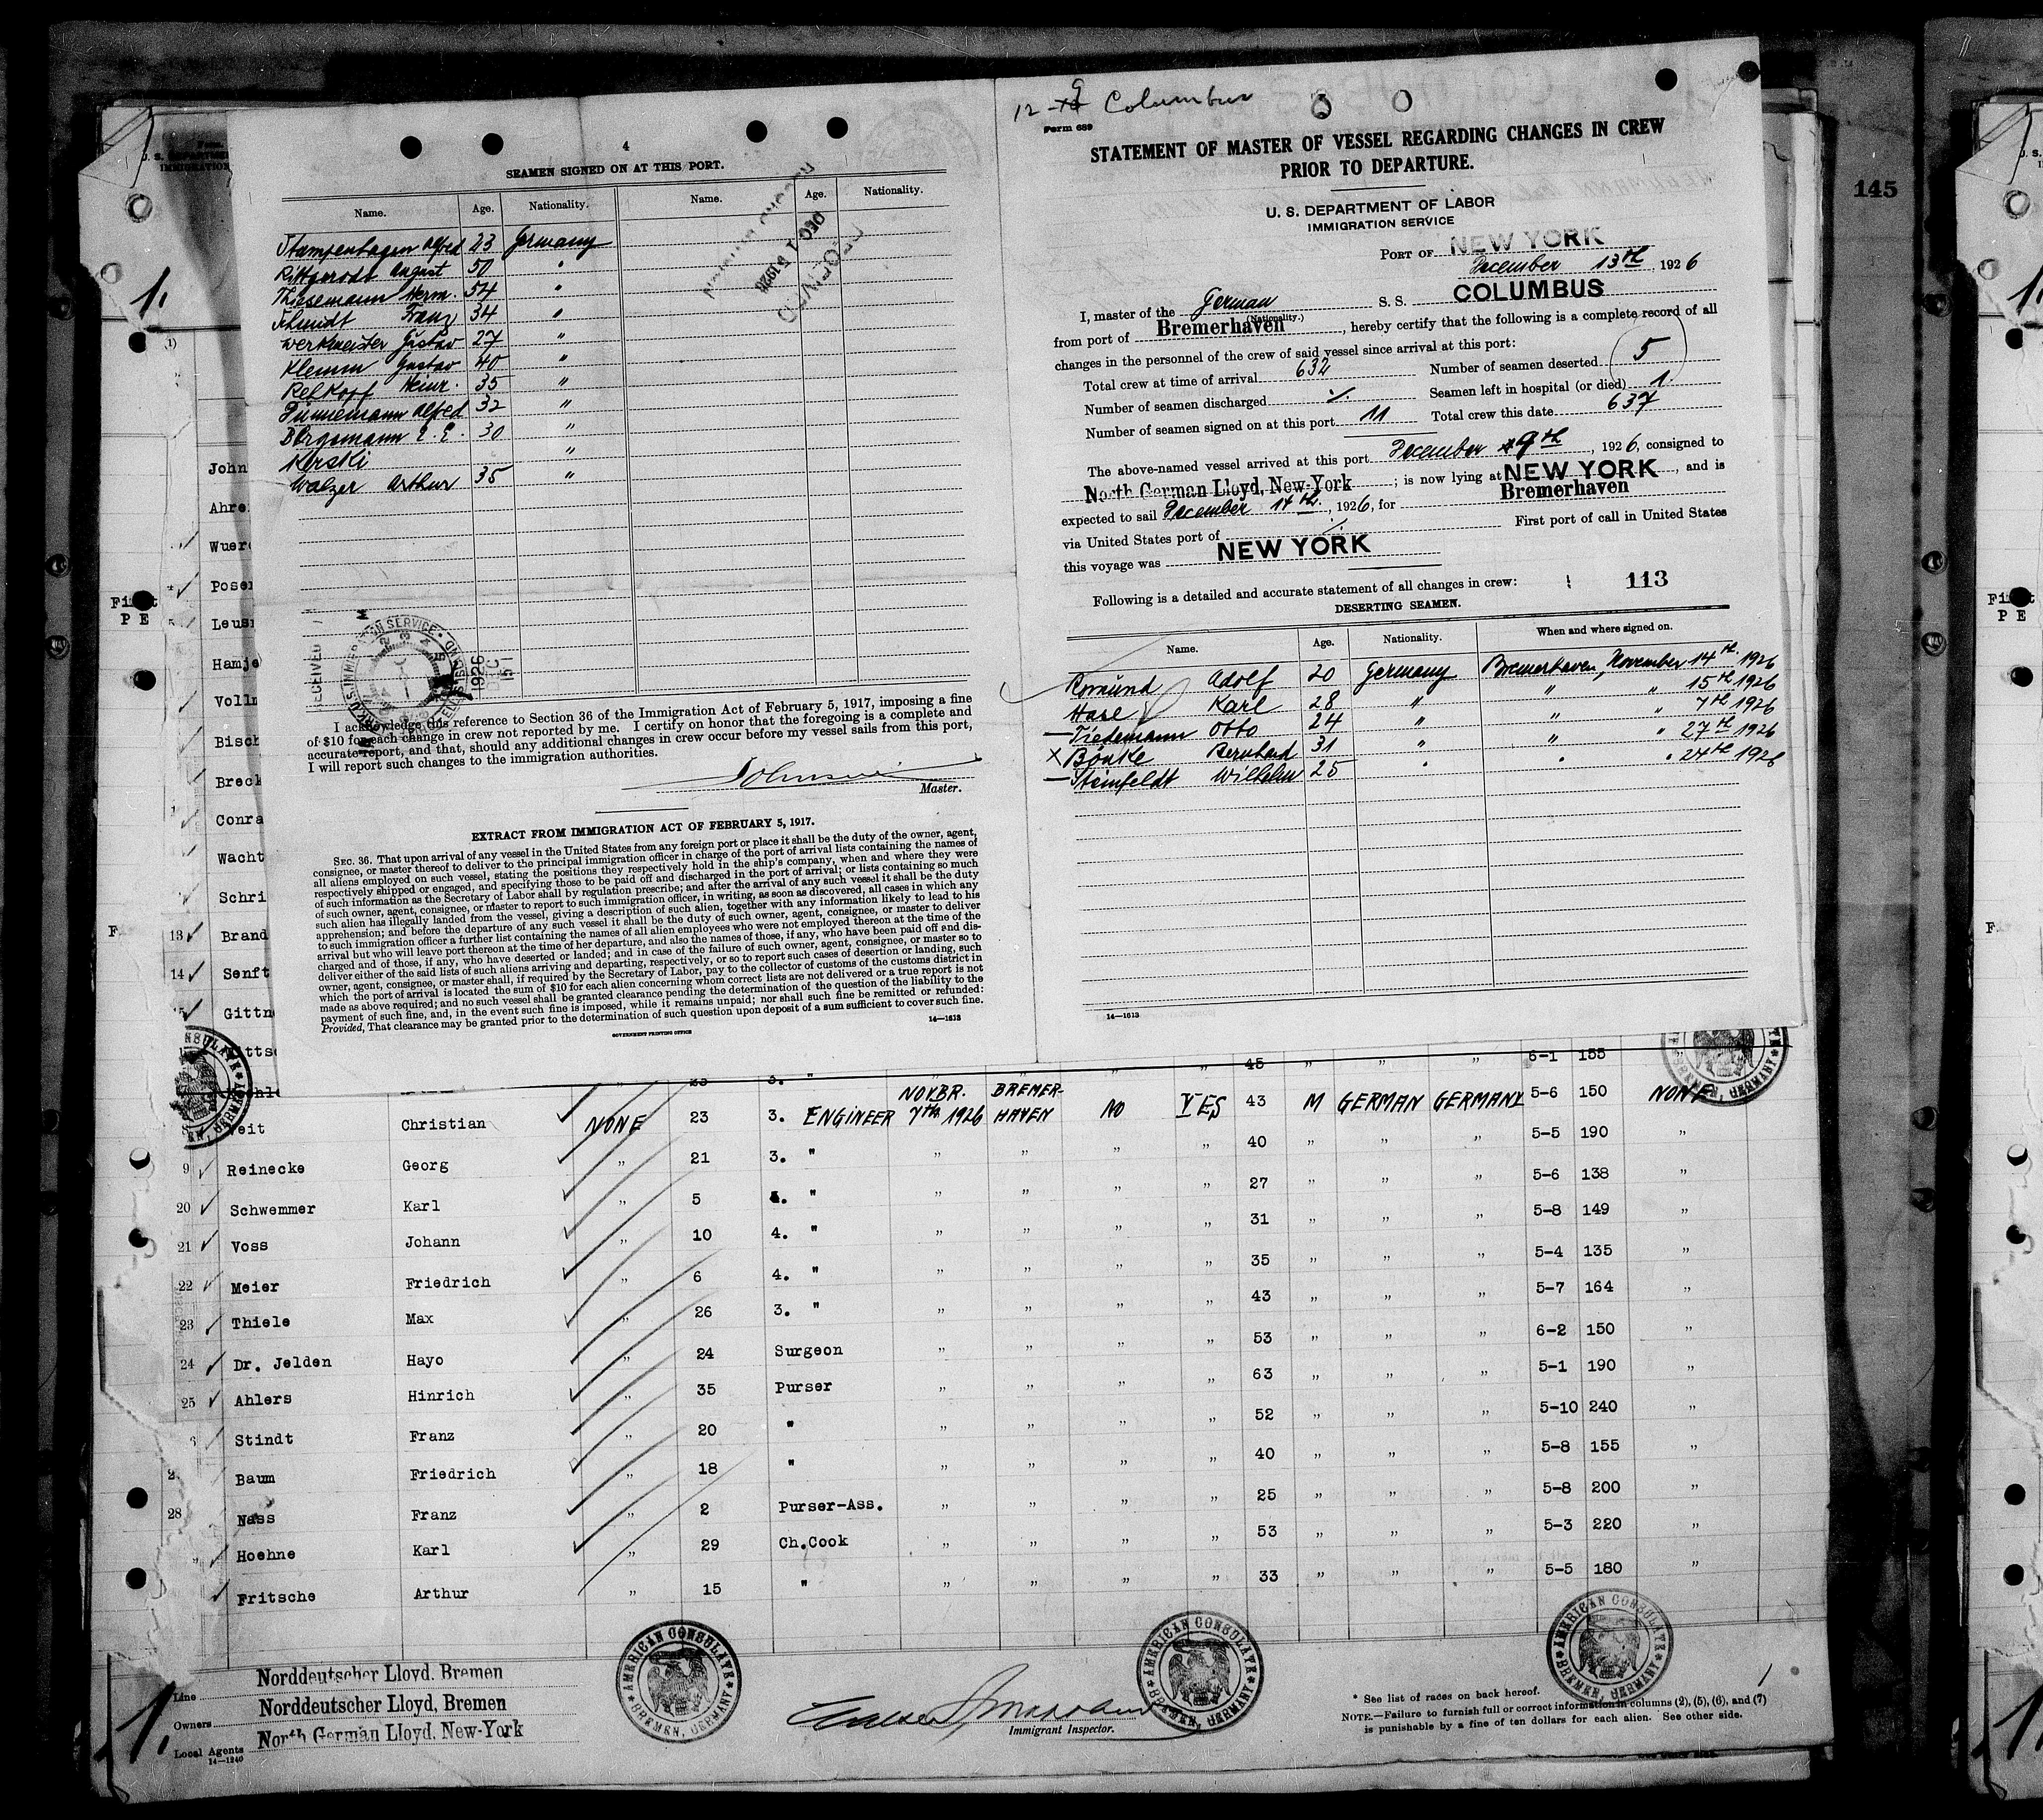 4
SEAMEN SIGNED ON AT THIS PORT.
Name. Age. Nationality. Name. Age. Nationality.
Stampenhagen Alfred 23 Germany
Rittgerodt August 50 "
Thiesemann Herm. 54 "
Schmidt Franz 34 "
Werkmeister Gustav 27 "
Klemm Gustav 40 "
Rehkopf Heinr. 35 "
Dünnemann Alfred 32 "
Bergemann E. E. 30 "
Kerski "
Walzer Arthur 35 "
DEC 15 1926
I acknowledge this reference to Section 36 of the Immigration Act of February 5, 1917, imposing a fine
of $10 for each change in crew not reported by me. I certify on honor that the foregoing is a complete and
accurate report, and that, should any additional changes in crew occur before my vessel sails from this port,
I will report such changes to the immigration authorities.
Master.
EXTRACT FROM IMMIGRATION ACT OF FEBRUARY 5, 1917.
SEC. 36. That upon arrival of any vessel in the United States from any foreign port or place it shall be the duty of the owner, agent,
consignee, or master thereof to deliver to the principal immigration officer in charge of the port of arrival lists containing the names of
all aliens employed on such vessel, stating the positions they respectively hold in the ship's company, when and where they were
respectively shipped or engaged, and specifying those to be paid off and discharged in the port of arrival; or lists containing so much
of such information as the Secretary of Labor shall by regulation prescribe; and after the arrival of any such vessel it shall be the duty
of such owner, agent, consignee, or master to report to such immigration officer, in writing, as soon as discovered, all cases in which any
such alien has illegally landed from the vessel, giving a description of such alien, together with any information likely to lead to his
apprehension; and before the departure of any such vessel it shall be the duty of such owner, agent, consignee, or master to deliver
to such immigration officer a further list containing the names of all alien employees who were not employed thereon at the time of the
arrival but who will leave port thereon at the time of her departure, and also the names of those, if any, who have been paid off and dis-
charged and of those, if any, who have deserted or landed; and in case of the failure of such owner, agent, consignee, or master so to
deliver either of the said lists of such aliens arriving and departing, respectively, or so to report such cases of desertion or landing, such
owner, agent, consignee, or master shall, if required by the Secretary of Labor, pay to the collector of customs of the customs district in
which the port of arrival is located the sum of $10 for each alien concerning whom correct lists are not delivered or a true report is not
made as above required; and no such vessel shall be granted clearance pending the determination of the question of the liability to the
payment of such fine, and, in the event such fine is imposed, while it remains unpaid; nor shall such fine be remitted or refunded:
Provided, That clearance may be granted prior to the determination of such question upon deposit of a sum sufficient to cover such fine.
GOVERNMENT PRINTING OFFICE 14—1613
12-9 Columbus
Form 689
STATEMENT OF MASTER OF VESSEL REGARDING CHANGES IN CREW
PRIOR TO DEPARTURE.
U. S. DEPARTMENT OF LABOR
IMMIGRATION SERVICE
PORT OF NEW YORK
December 13th, 1926
I, master of the German S. S. COLUMBUS
(Nationality.)
from port of Bremerhaven, hereby certify that the following is a complete record of all
changes in the personnel of the crew of said vessel since arrival at this port:
Total crew at time of arrival 632 Number of seamen deserted 5
Number of seamen discharged ./. Seamen left in hospital (or died) 1.
Number of seamen signed on at this port 11 Total crew this date 637
The above-named vessel arrived at this port December 9th, 1926, consigned to
North German Lloyd, New-York; is now lying at NEW YORK, and is
expected to sail December 14th., 1926, for Bremerhaven
via United States port of ./. First port of call in United States
this voyage was NEW YORK
Following is a detailed and accurate statement of all changes in crew: 113
DESERTING SEAMEN.
Name. Age. Nationality. When and where signed on.
Romünd Adolf 20 Germany Bremerhaven, November 14th. 1926
Hase Karl 28 " " " 15th 1926
Tiedemann Otto 24 " " " 7th 1926
X Bönke Bernhard 31 " " " 27th 1926
Steinfeldt Wilhelm 25 " " " 24th 1926
14—1613
145
John
Ahre
Wuer
Posen
Leus
Hamje
Volln
Bisch
Breck
Conra
Wacht
Schri
13 Brand
14 Senft
Gittn
45 " " " 6-1 155
Veit Christian NONE 23 3. ENGINEER NOVBR. 7th 1926 BREMER-HAVEN NO YES 43 M GERMAN GERMANY 5-6 150 NONE
9 Reinecke Georg " 21 3. " " " " " 40 " " " 5-5 190 "
20 Schwemmer Karl " 5 4. " " " " " 27 " " " 5-6 138 "
21 Voss Johann " 10 4. " " " " " 31 " " " 5-8 149 "
22 Meier Friedrich " 6 4. " " " " " 35 " " " 5-4 135 "
23 Thiele Max " 26 3. " " " " " 43 " " " 5-7 164 "
24 Dr. Jelden Hayo " 24 Surgeon " " " " 53 " " " 6-2 150 "
25 Ahlers Hinrich " 35 Purser " " " " 63 " " " 5-1 190 "
Stindt Franz " 20 " " " " " 52 " " " 5-10 240 "
Baum Friedrich " 18 " " " " " 40 " " " 5-8 155 "
28 Nass Franz " 2 Purser-Ass. " " " " 25 " " " 5-8 200 "
Hoehne Karl " 29 Ch.Cook " " " " 53 " " " 5-3 220 "
Fritsche Arthur " 15 " " " " " 33 " " " 5-5 180 "
AMERICAN CONSULATE BREMEN, GERMANY
AMERICAN CONSULATE BREMEN, GERMANY
AMERICAN CONSULATE BREMEN, GERMANY
Line Norddeutscher Lloyd, Bremen
Owners Norddeutscher Lloyd, Bremen
Local Agents North German Lloyd, New-York
14—1240
Immigrant Inspector.
* See list of races on back hereof.
NOTE.—Failure to furnish full or correct information in columns (2), (5), (6), and (7)
is punishable by a fine of ten dollars for each alien. See other side.